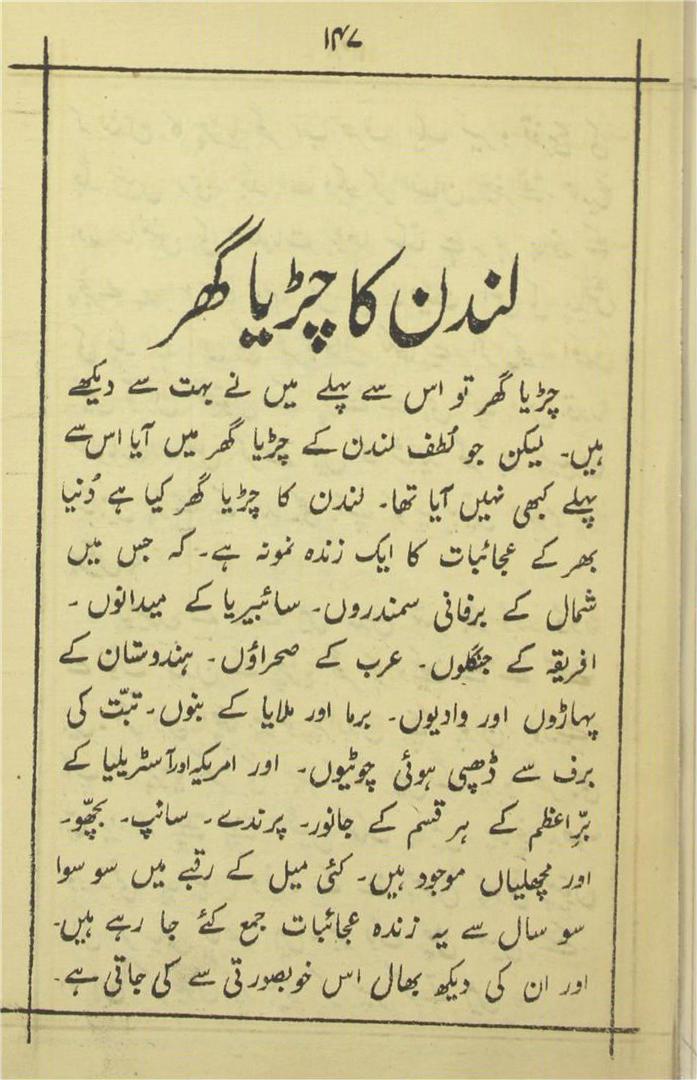 ۱۴۷
لندن کا چڑیا گھر
چڑیا گھر تو اس سے پہلے میں نے بہت سے دیکھے
ہیں۔ لیکن جو لُطف لندن کے چڑیا گھر میں آیا اس سے
پہلے کبھی نہیں آیا تھا۔ لندن کا چڑیا گھر کیا ہے دُنیا
بھر کے عجائبات کا ایک زندہ نمونہ ہے۔ کہ جس میں
شمال کے برفانی سمندروں۔ سائبیریا کے میدانوں۔
افریقہ کے جنگلوں۔ عرب کے صحراؤں۔ ہندوستان کے
پہاڑوں اور وادیوں۔ برما اور ملایا کے بنوں۔ تبّت کی
برف سے ڈھپی ہوئی چوٹیوں۔ اور امریکہ اور آسٹریلیا کے
برِّاعظم کے ہر قسم کے جانور۔ پرندے۔ سانپ۔ بچھّو۔
اور مچھلیاں موجود ہیں۔ کئی میل کے رقبے میں سو سوا
سو سال سے یہ زندہ عجائبات جمع کئے جا رہے ہیں۔
اور ان کی دیکھ بھال اس خوبصورتی سے کی جاتی ہے۔